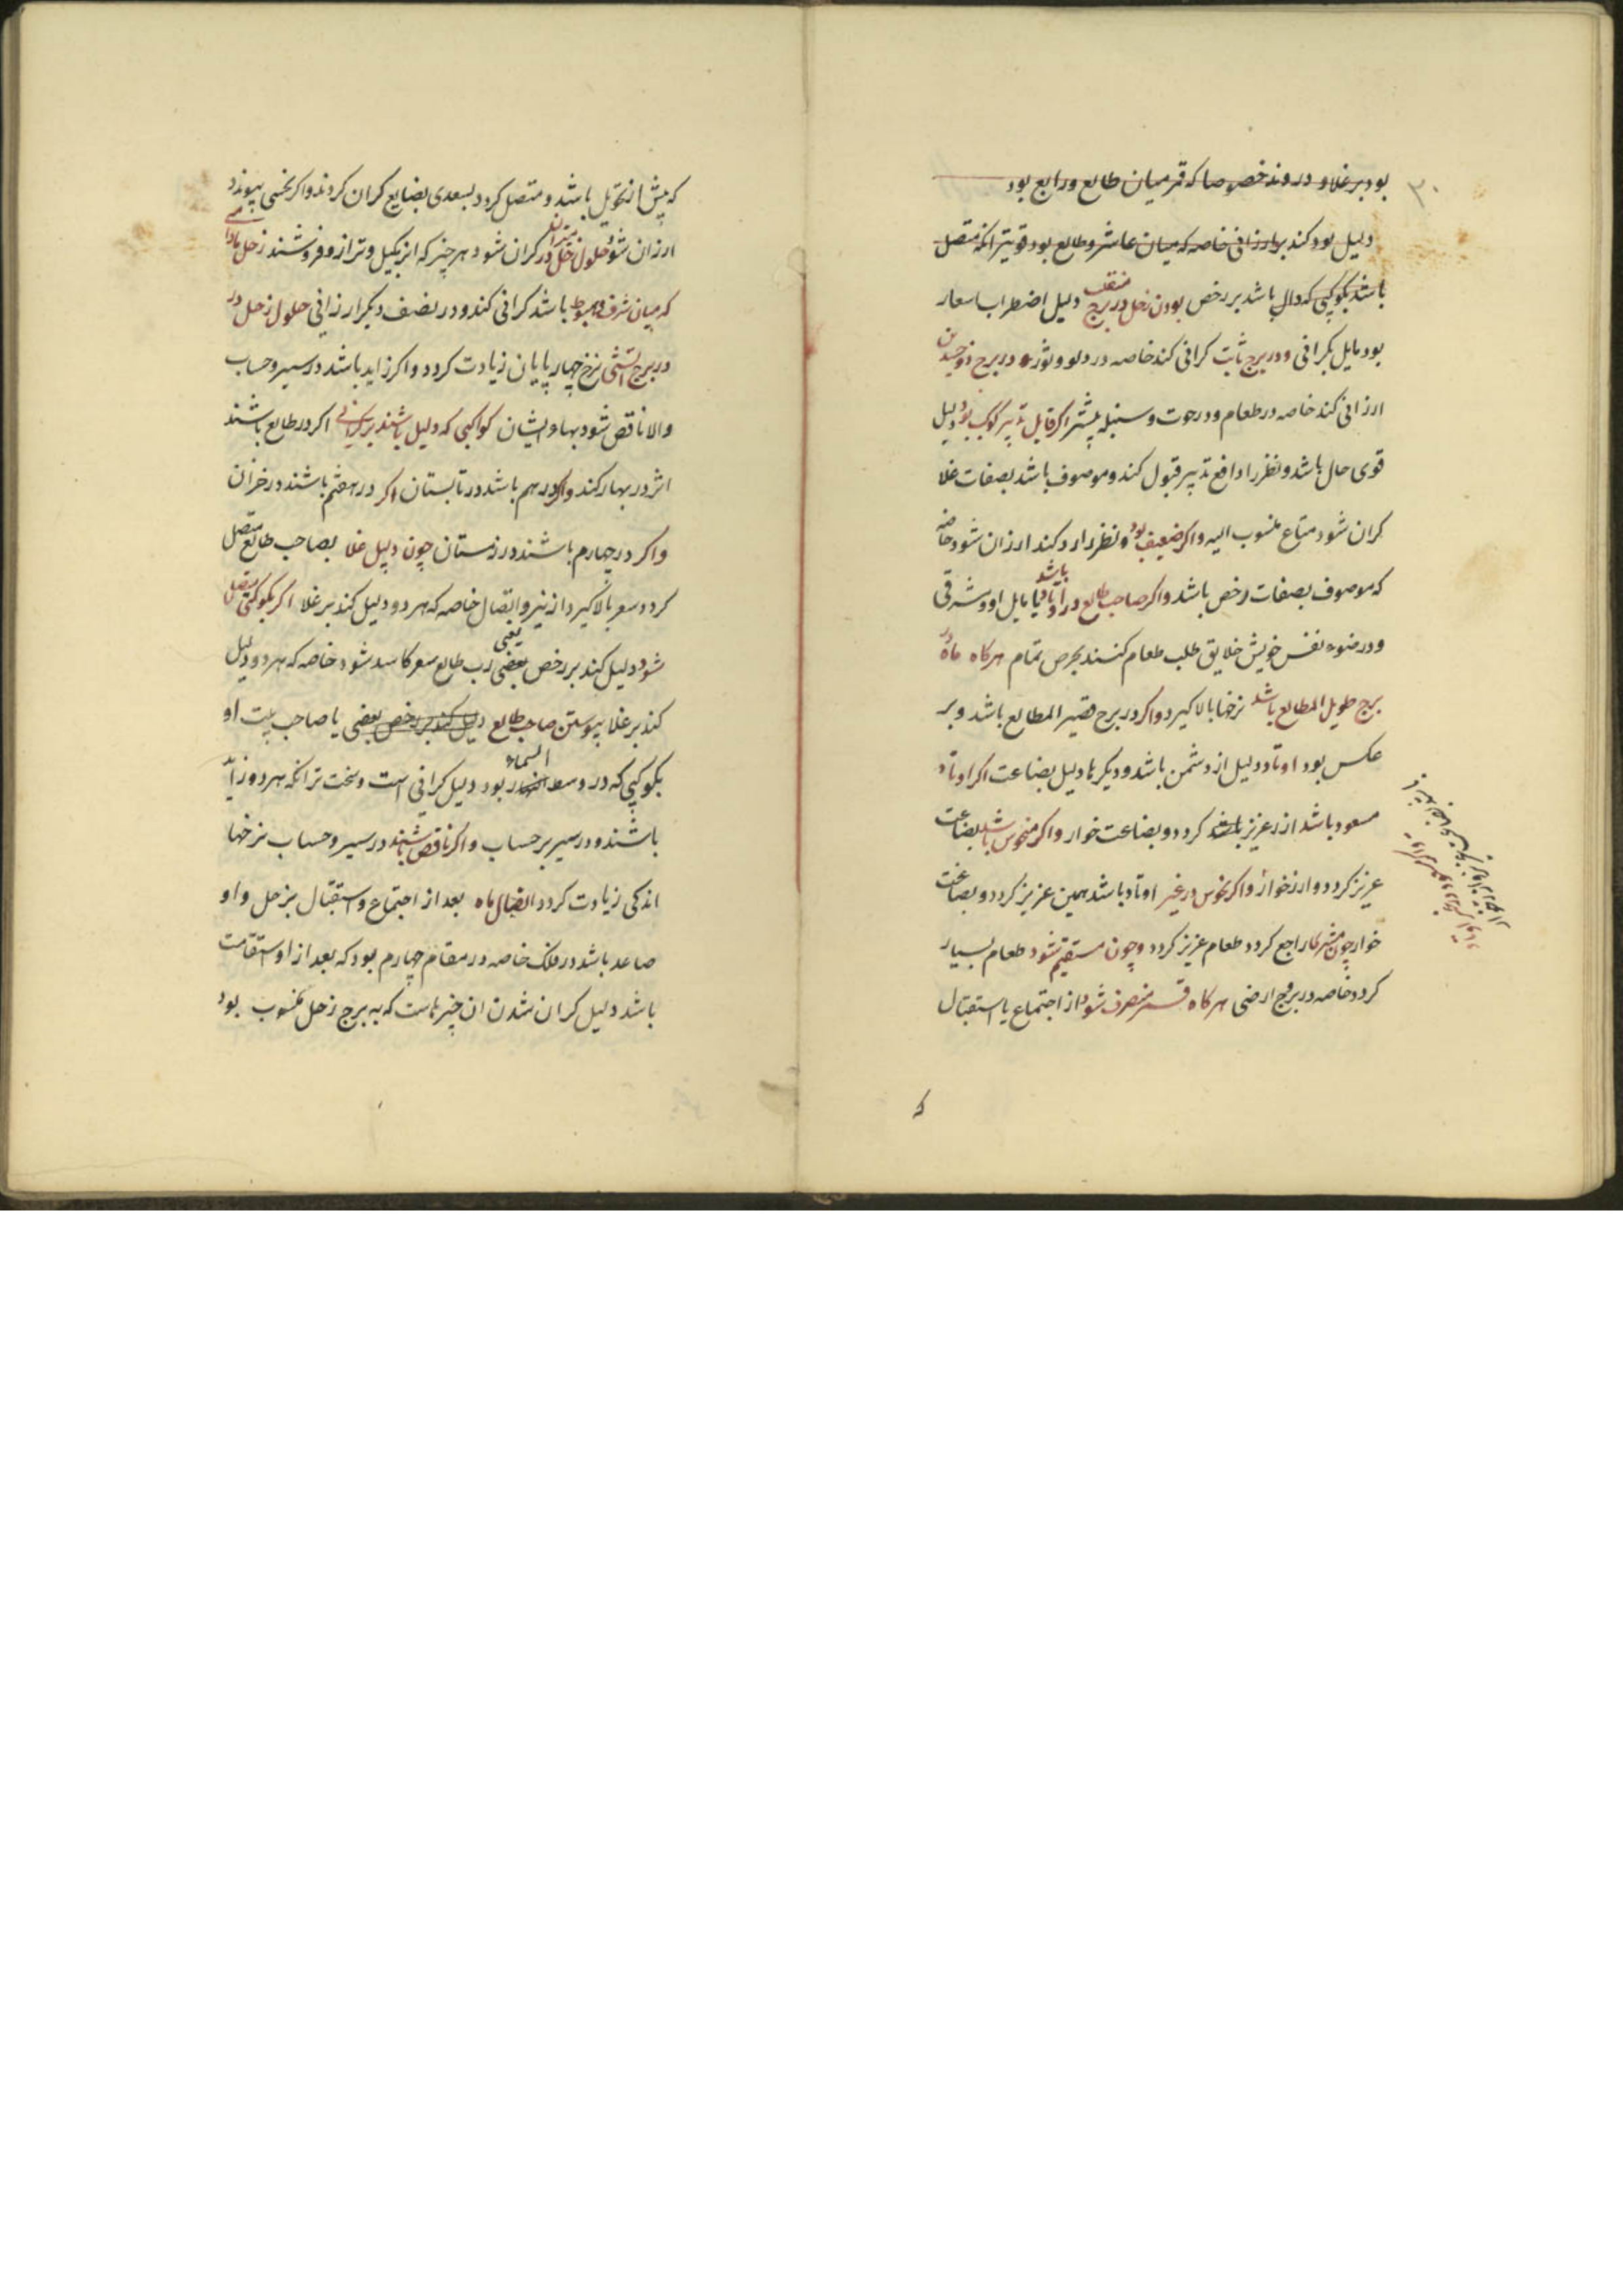 ٣٠
بود بر غلا و در وتد خصوصا که قمر میان طالع و رابع بود
دلیل بود کند بر ارزانی خاصه که میان عاشر و طالع بود قویتر انکه متصل
باشد بکوکبی که دال باشد بر رخص بودن زحل در برج منقلب دلیل اضطراب اسعار
بود مایل بکرانی و در برج ثابت کرانی کند خاصه در دلو و ثور و در برج ذوجسدین
ارزانی کند خاصه در طعام و در حوت و سنبله بیشتر اکر قابل تدبیر کوکب بود دلیل
قوی حال باشد و نظر را دافع تدبیر قبول کند و موصوف باشد بصفات غلا
کران شود متاع منسوب الیه و اکر ضعیف بود و نظر را رد کند ارزان شود خاصه
که موصوف بصفات رخص باشد و اکر صاحب طالع در اوتاد باشد یا مایل او و شرقی
و در ضوء نفس خویش خلایق طلب طعام کنند بحرص تمام هرکاه ماه در
برج طویل المطالع باشد نرخها بالا کیرد و اکر در برج قصیر المطالع باشد و بر
عکس بود اوتاد دلیل ارز و ثمن باشد و دیکرها دلیل بضاعت اکر اوتاد
مسعود باشد ارز عزیز باشد کردد و بضاعت خوار و اکر منحوس باشد بضاعت
عزیز کردد و ارز خوار و اکر نحوس در غیر اوتاد باشد ثمن عزیز کردد و بضاعت
خوار چون مشتری راجع کردد طعام عزیز کردد و چون مستقیم شود طعام بسیار
کردد خاصه در بروج ارضی هرکاه قمر منصرف شود از اجتماع یا استقبال
که
که پیش از تحویل باشد و متصل کردد بسعدی بضایع کران کردند و اکر بنحسی پیوندد
ارزان شود حلول زحل در میزان کران شود هر چیز که انرا بکیل و ترازو فروشند زحل مادامی
که میان شرف و هبوط باشد کرانی کند و در نصف دیکر ارزانی حلول زحل در
در برج اتشی نرخ چهارپایان زیادت کردد و اکر زاید باشد در سیر و حساب
و الا ناقص شود بهاء ایشان کواکبی که دلیل باشند بر کرانی اکر در طالع باشند
اثر در بهار کند و اکر در دهم باشد در تابستان اکر در هفتم باشند در خزان
و اکر در چهارم باشند در زمستان چون دلیل غلا بصاحب طالع متصل
کردد سعر بالا کیرد از نیر و اتصال خاصه که هر دو دلیل کند بر غلا اکر بکوکبی متصل
شود دلیل کند بر رخص بعضی یعنی رب طالع سعر کاسد شود خاصه که هر دو دلیل
کند بر غلا پیوستن صاحب طالع دلیل کند بر رخص بعضی یا صاحب بیت او
بکوکبی که در وسط السماء بود دلیل کرانی است و سخت تر انکه هر دو زاید
باشند در سیر بر حساب و اکر ناقص باشند در سیر و حساب نرخها
اندکی زیادت کردد اتصال ماه بعد از اجتماع و استقبال بزحل و او
صاعد باشد در فلک خاصه در مقام چهارم بود که بعد از او استقامت
باشد دلیل کران شدن ان چیزهاست که به برج زحل منسوب بود